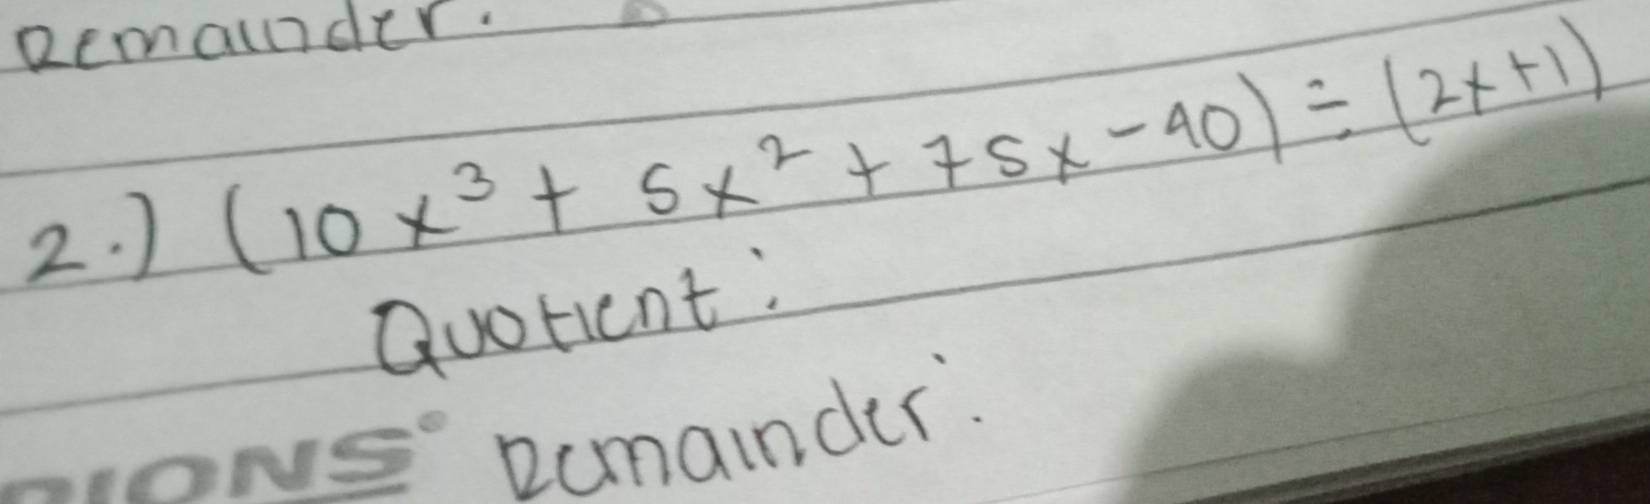 Remainder.
2.) (10x³ + 5x² + 75x - 40) ÷ (2x+1)
Quotient:
IONS
Remainder: